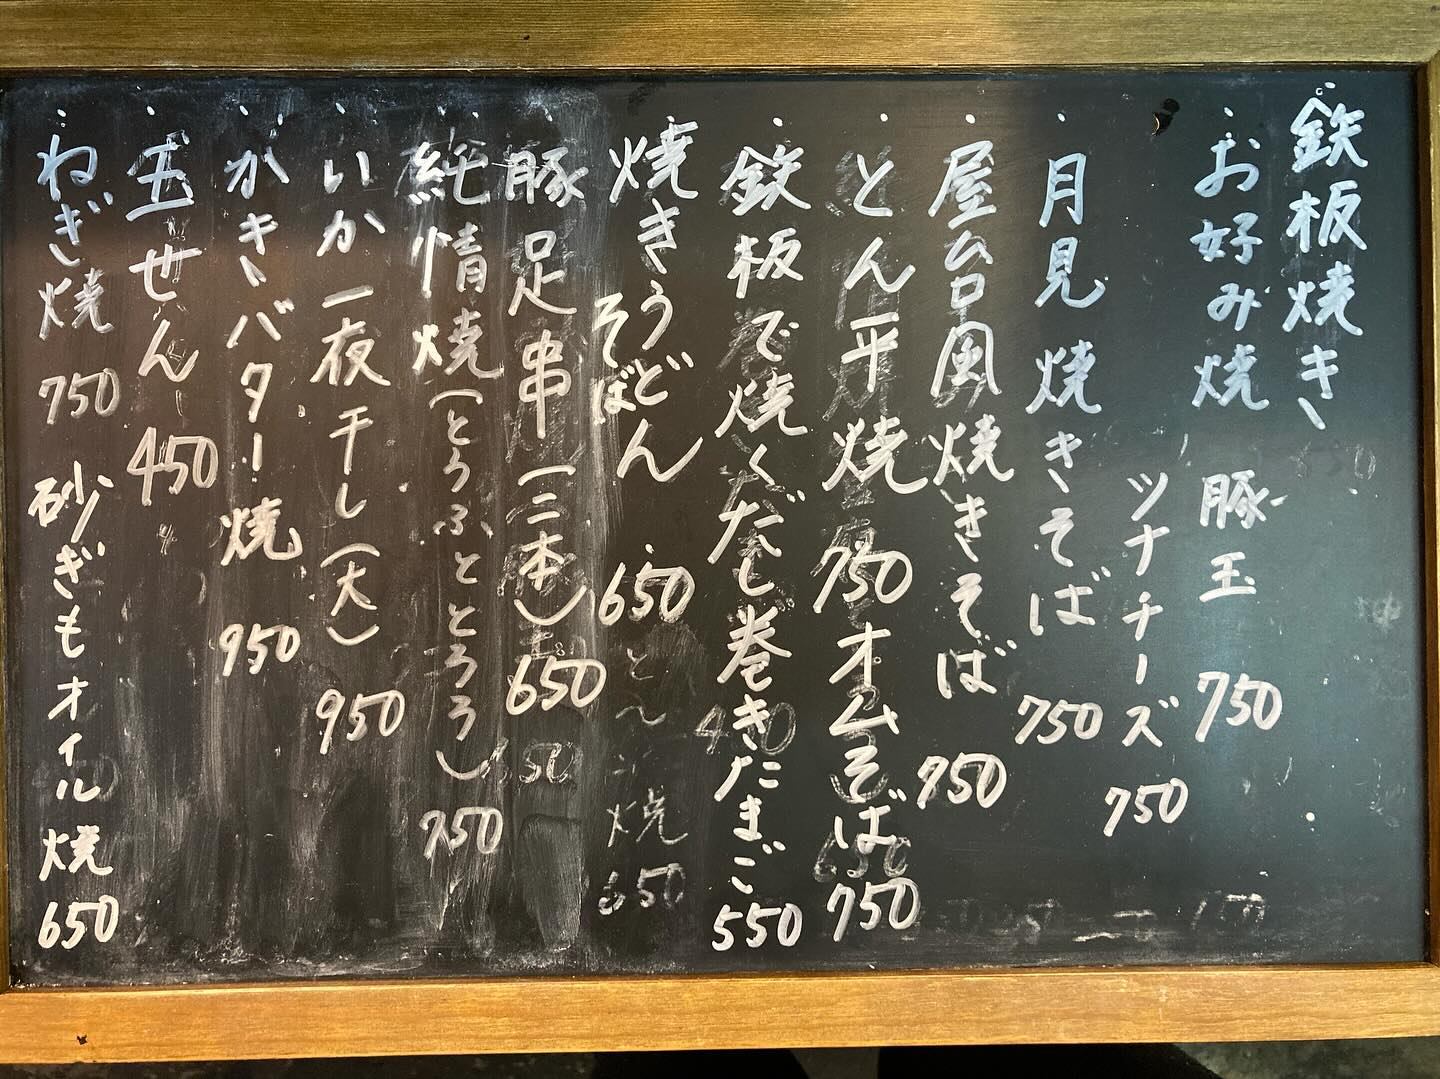 鉄板焼き
・お好み焼 豚玉 750
ツナチーズ 750
・月見焼きそば 750
・屋台風焼きそば 750
・とん平焼 750 オムそば 750
・鉄板で焼くだし巻きたまご 550
・焼きうどん そば 650
・豚足串(二本) 650
・純情焼(とうふととろろ) 750
・いか一夜干し(大) 950
・かきバター焼 950
・五せん 450
・ねぎ焼 750 砂ぎもオイル焼 650